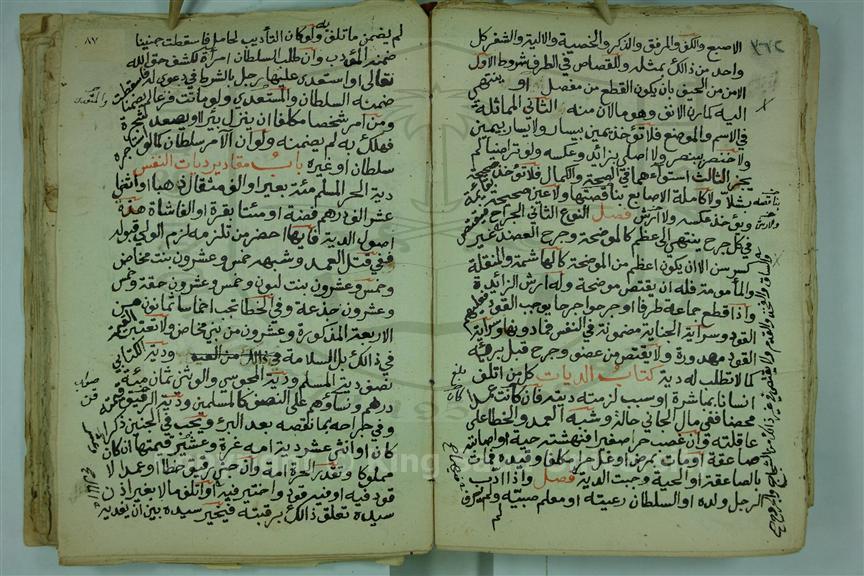 الاصبع والكف والمرفق والذكر والخصية والالية والشفر كل
واحد من ذلك بمثله وللقصاص في الطرف شروط الاول
الامن من الحيف بان يكون القطع من مفصل او ينتهي
اليه كمارن الانف وهو مالان منه الثاني المماثلة
في الاسم والموضع فلا تؤخذ يمين بيسار ولا يسار بيمين
ولا خنصر ببنصر ولا اصلي بزائد وعكسه ولو تراضيا لم
يجز الثالث استواءهما في الصحة والكمال فلا تؤخذ صحيحة
بشلا ولا كاملة الاصابع بناقصتها ولا عين صحيحة بقائمة
ويؤخذ عكسه ولا ارش فصل النوع الثاني الجراح فيقتص
في كل جرح ينتهي الى عظم كالموضحة وجرح العضد غير
كسر سن الا ان يكون اعظم من الموضحة كالهاشمة والمنقلة
والمأمومة فله ان يقتص موضحة وله ارش الزائدة
واذا قطع جماعة طرفا او جرحوا جرحا يوجب القود فعليهم
القود وسراية الجناية مضمونة في النفس فما دونها وسراية
القود مهدورة ولا يقتص من عضو وجرح قبل برئه
كما لا تطلب له دية كتاب الديات كل من اتلف
انسانا بمباشرة او سبب لزمته ديته فان كانت عمدا
محضا ففي مال الجاني حالة وشبه العمد والخطا على
عاقلته وان غصب حرا صغيرا فنهشته حية او اصابته
صاعقة او مات بمرض او غل حرا مكلفا وقيده فمات
بالصاعقة او الحية وجبت الدية فصل واذا ادب
الرجل ولده او السلطان رعيته او معلم صبيه ولم يسرف
٨٧
لم يضمن ما تلف به ولو كان التأديب لحامل فاسقطت جنينا
ضمنه المؤدب وان طلب السلطان امرأة لكشف حق الله
تعالى او استعدى عليها رجل بالشرط في دعوى له فاسقطت
ضمنه السلطان والمستعدي ولو ماتت فزعا لم يضمنا
ومن امر شخصا مكلفا ان ينزل بيرا او يصعد شجرة
فهلك به لم يضمنه ولو ان الآمر سلطان كما لو استاجره
سلطان او غيره باب مقادير ديات النفس
دية الحر المسلم مئة بعير او الف مثقال ذهبا او اثني
عشر الف درهم فضة او مئتا بقرة او الفا شاة هذه
اصول الدية فايها احضر من تلزمه لزم الولي قبوله
ففي قتل العمد وشبهه خمس وعشرون بنت مخاض
وخمس وعشرون بنت لبون وخمس وعشرون حقة وخمس
وعشرون جذعة وفي الخطا تجب اخماسا ثمانون من
الاربعة المذكورة وعشرون من بني مخاض ولا تعتبر القيمة
في ذلك بل السلامة ودية الكتابي
نصف دية المسلم ودية المجوسي والوثني ثمان مئة
درهم ونساؤهم على النصف كالمسلمين ودية الرقيق قيمته
وفي جراحه بما نقصه بعد البرء ويجب في الجنين ذكرا
كان او انثى عشر دية امه غرة وعشر قيمتها ان كان
مملوكا وتقدر الحرة امة وان جنى رقيق خطأ او عمدا لا
قود فيه او فيه قود واختير فيه او اتلف مالا بغير اذن
سيده تعلق ذلك برقبته فيخير سيده بين ان يفديه